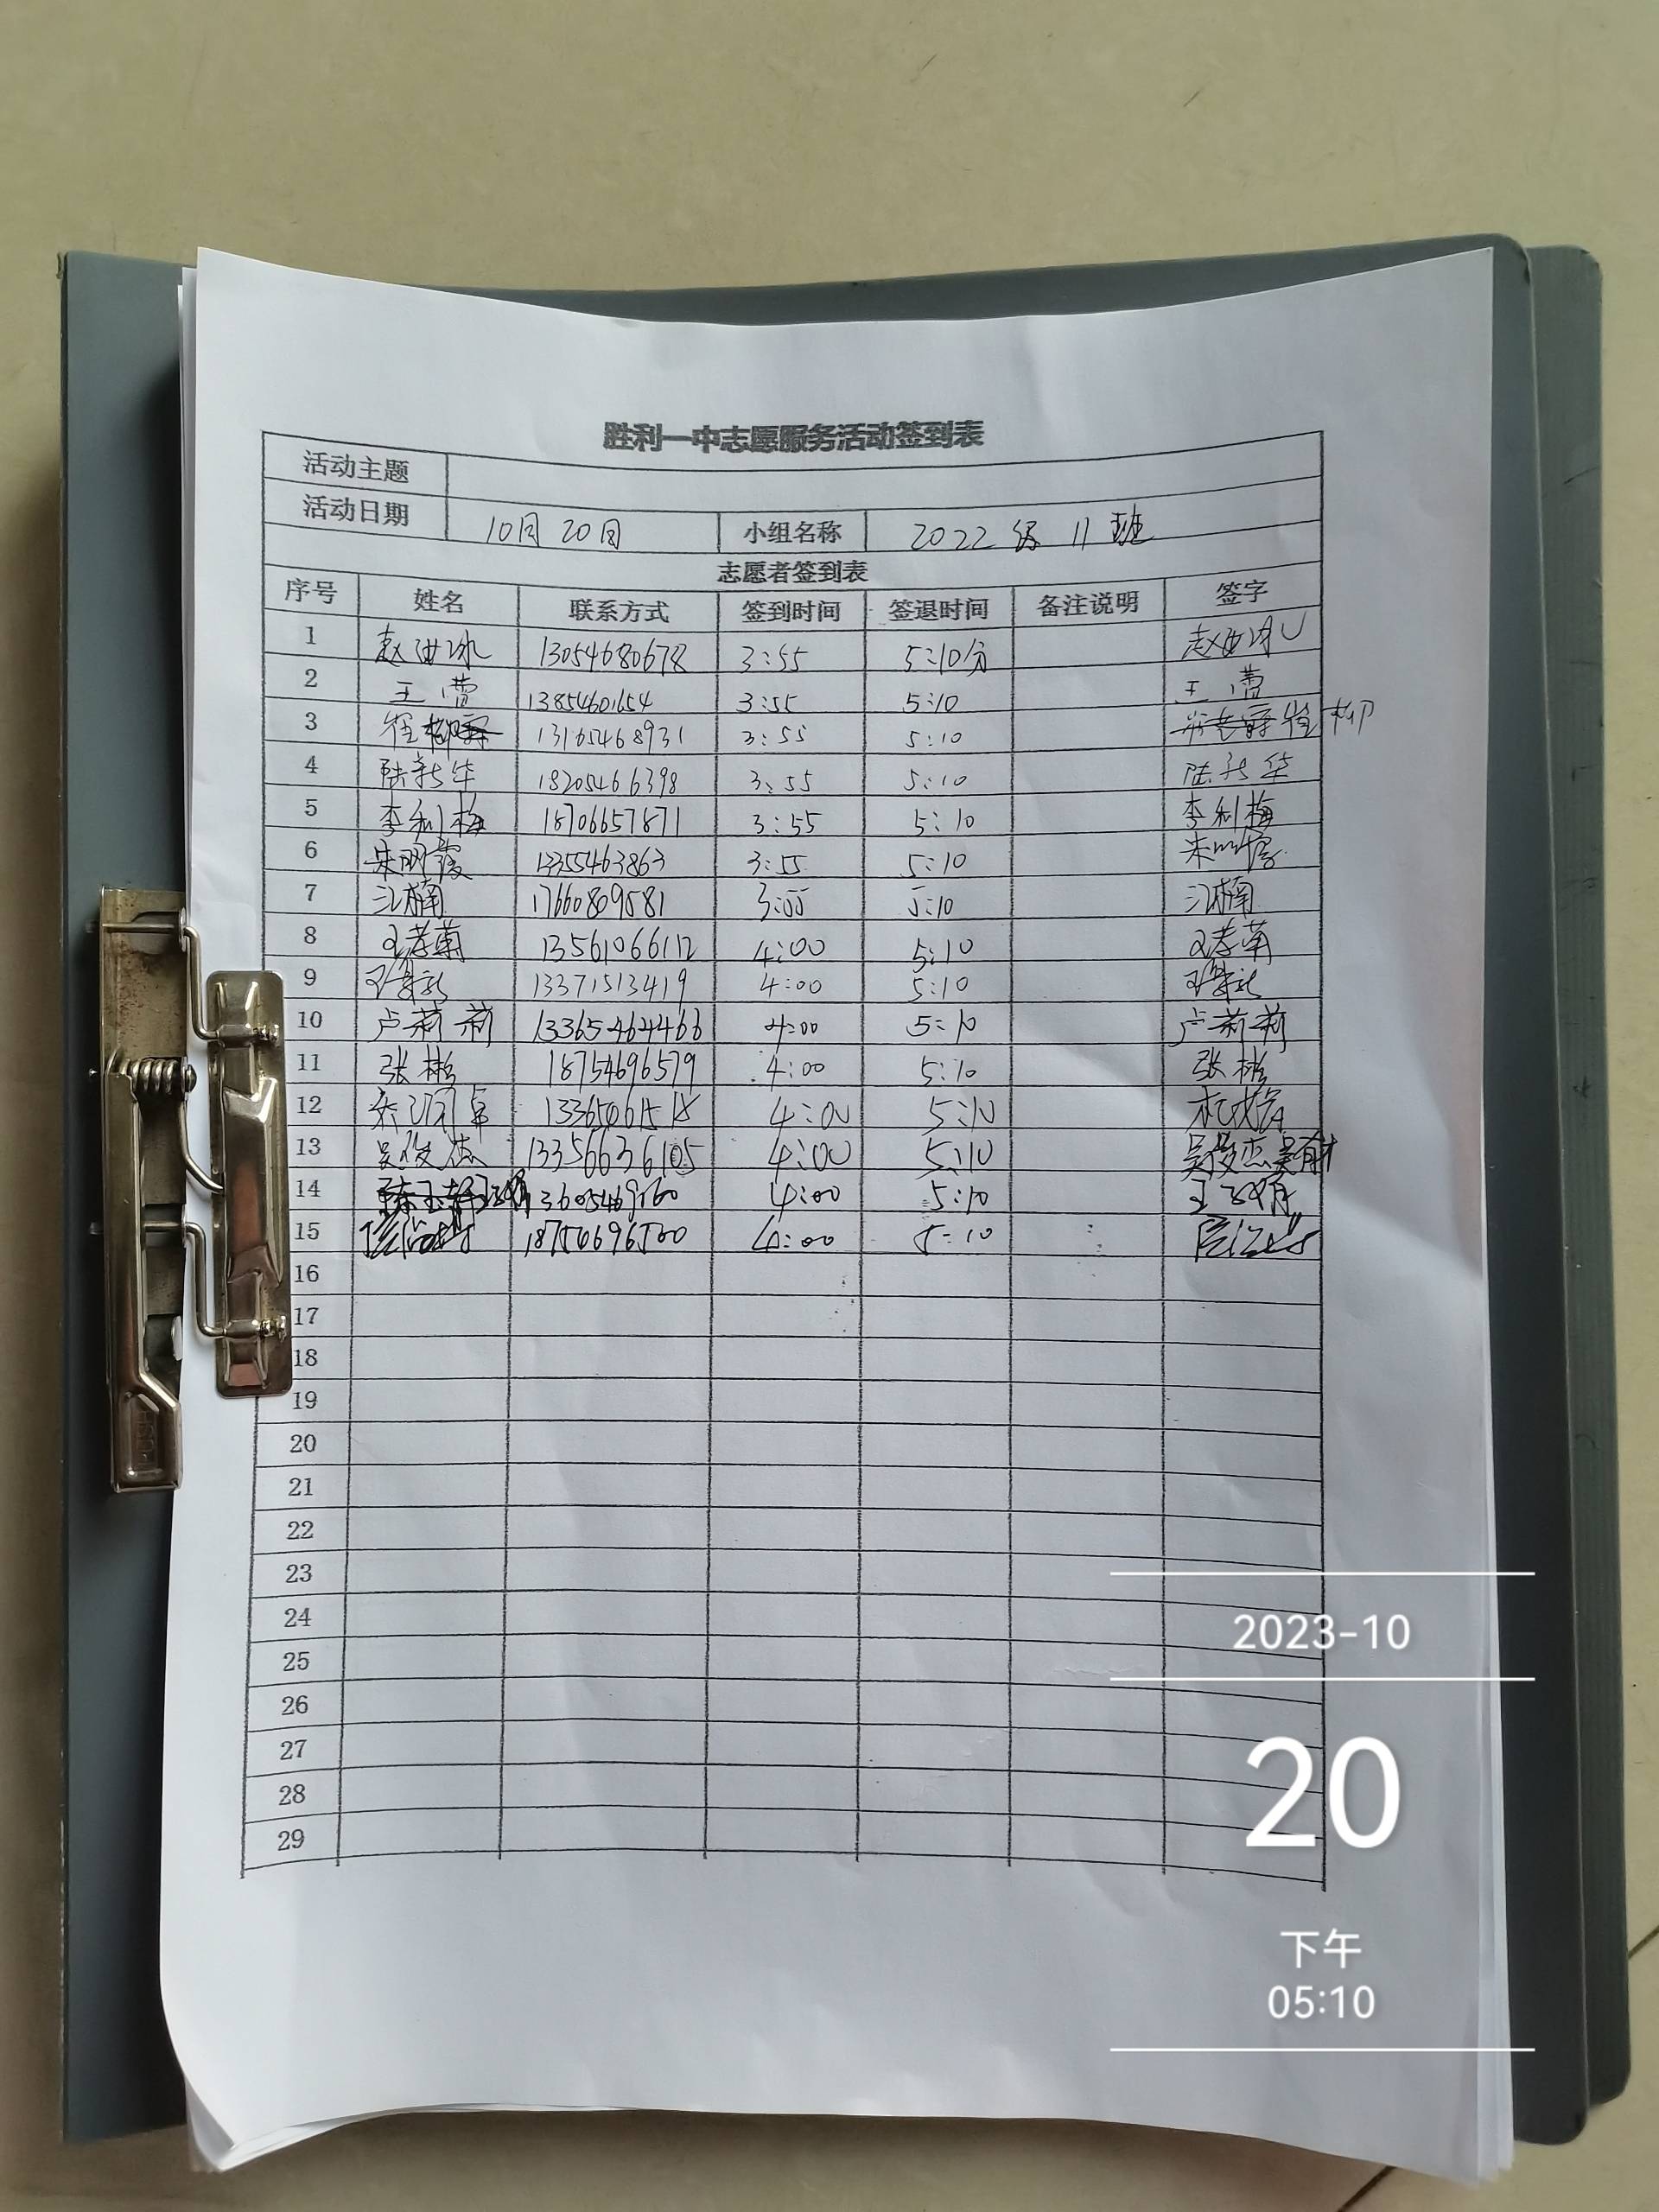 胜利一中志愿服务活动签到表
活动主题
活动日期 10月20日 小组名称 2022级11班
志愿者签到表
序号 姓名 联系方式 签到时间 签退时间 备注说明 签字
1 13054680678 3:55 5:10分
2 王 13854601654 3:55 5:10
3 崔柳 13165468931 3:55 5:10 崔柳
4 陆新华 18205466398 3:55 5:10 陆新华
5 李利梅 18706657871 3:55 5:10 李利梅
6 朱明霞 13355463863 3:55 5:10 朱明霞
7 江楠 17660809581 3:55 5:10 江楠
8 13561066112 4:00 5:10
9 13371513419 4:00 5:10
10 卢莉莉 13365464466 4:00 5:10 卢莉莉
11 张彬 18754696579 4:00 5:10 张彬
12 4:00 5:10
13 吴俊杰 13356636105 4:00 5:10 吴俊杰
14 4:00 5:10 王
15 4:00 5:10
16
17
18
19
20
21
22
23
24
25
26
27
28
29
2023-10
20
下午
05:10